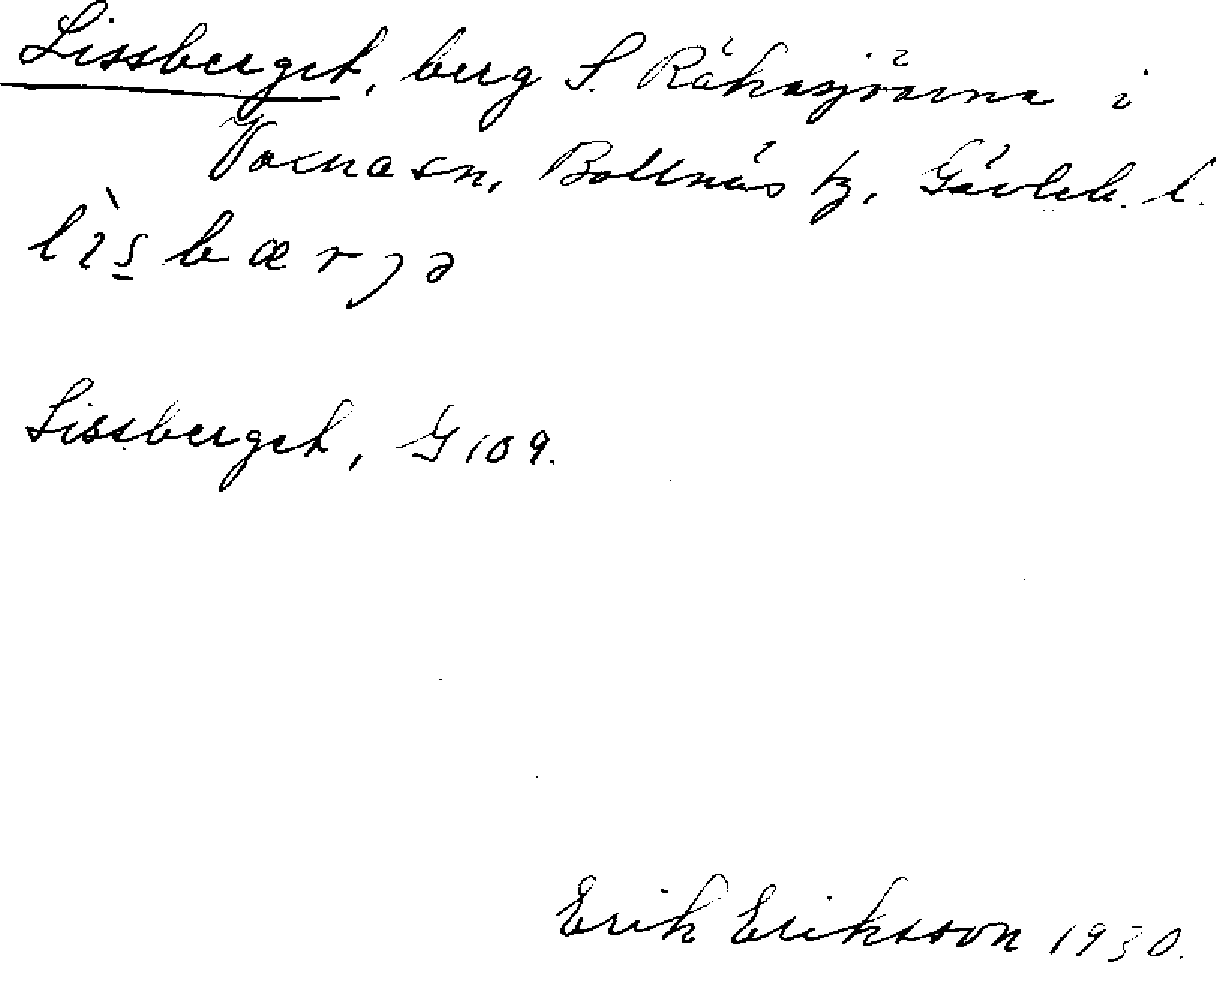 Lissberget, berg S. Råkasjöarna i
Voxna sn, Bollnäs tg, Gävleb. l.
lìsbærjə
Lissberget, G 109.
Erik Eriksson 1930.